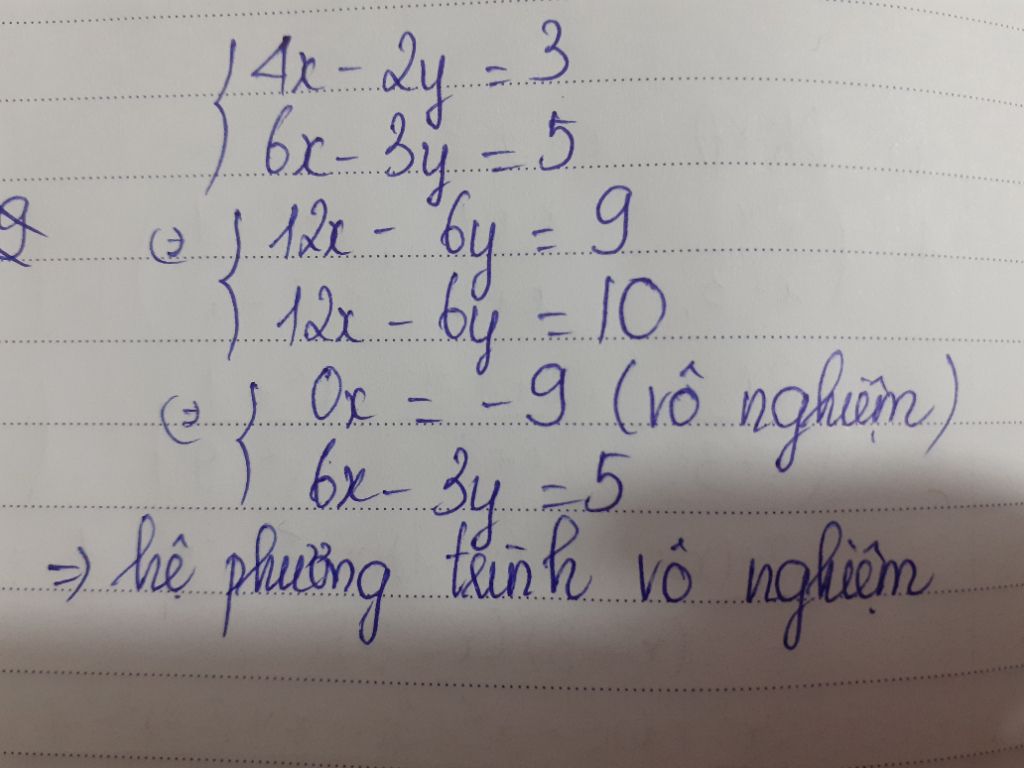 4x - 2y = 3
6x - 3y = 5
⇔ 12x - 6y = 9
12x - 6y = 10
⇔ 0x = -9 (vô nghiệm)
6x - 3y = 5
=> hệ phương trình vô nghiệm